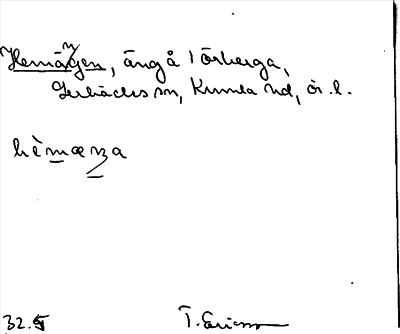 Hemängen, äng å Örberga,
Lerbäcks sn, Kumla hd, ör. l.
hèmæŋa
32.
T. Ericsson